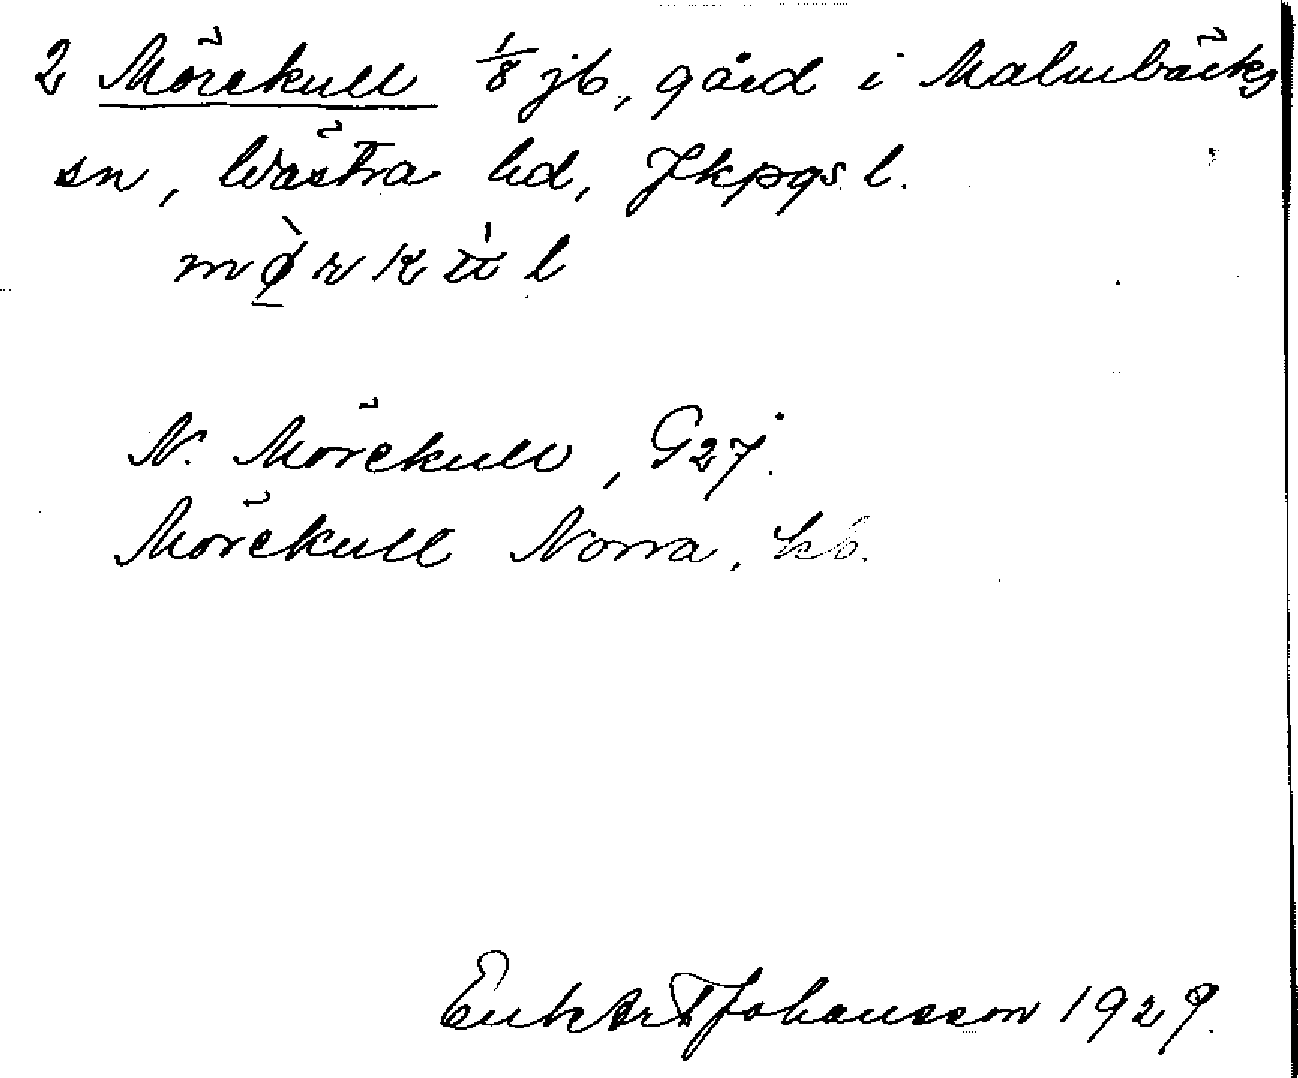 2 Mörekull 1/8 jb, gård i Malmbäcks
sn, Västra hd, Jkpgs l.
N. Mörekull, G27.
Mörekull Norra, kb.
Johansson 1929.